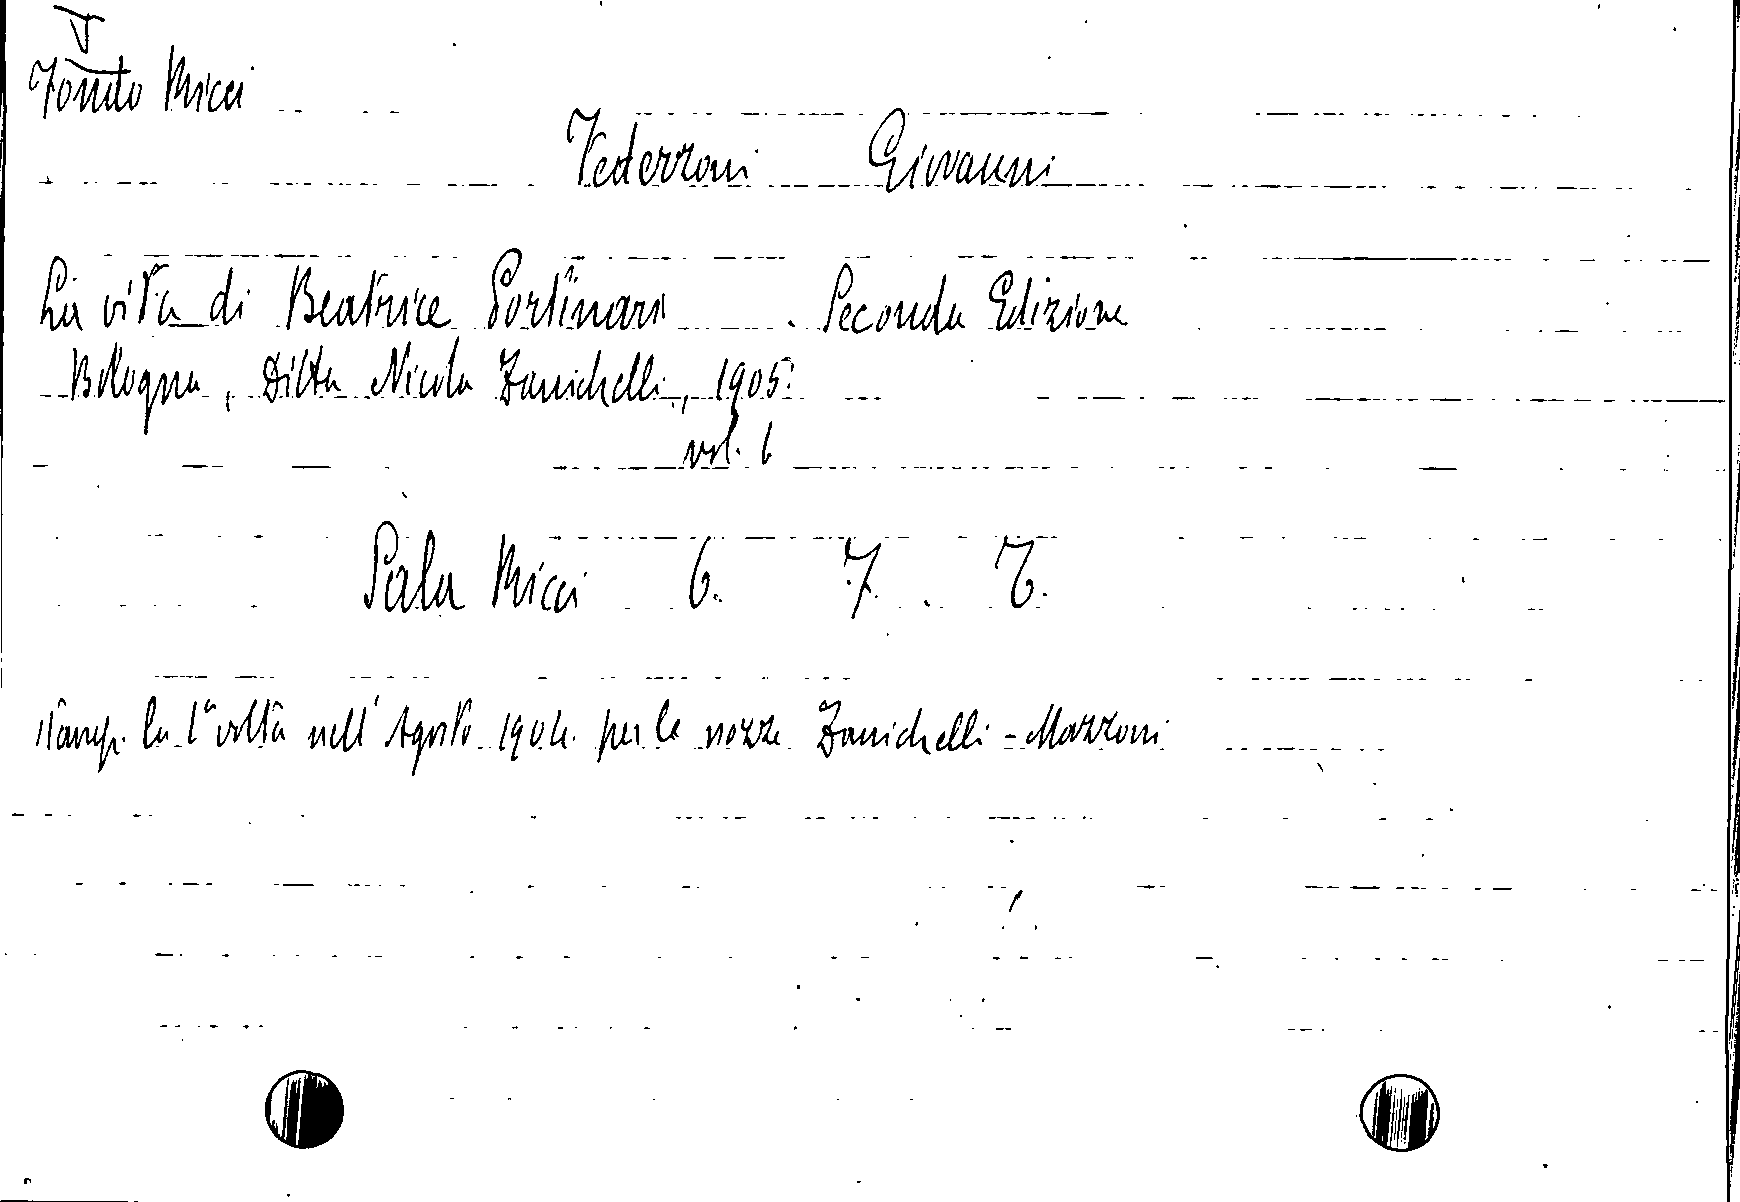 Fondo Ricci
Federzoni Giovanni
La vita di Beatrice Portinari. Seconda Edizione
Bologna, Ditta Nicola Zanichelli, 1905.
vol. 6
Sala Ricci 6. 7. 7.
Stamp. la 1ª volta nell'Agosto 1904. per le nozze Zanichelli-Mazzoni